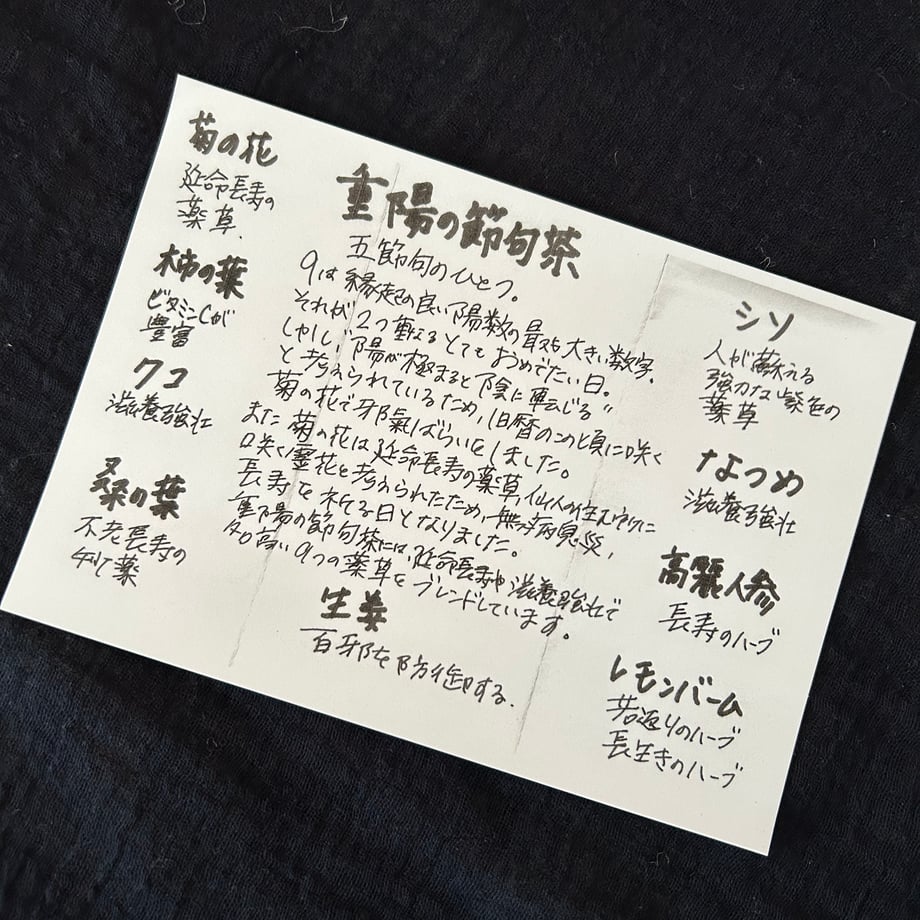 重陽の節句茶
五節句のひとつ。
9は縁起の良い陽数の最も大きい数字。
それが2つ重なるとてもおめでたい日。
しかし"陽が極まると陰に転じる"
と考えられているため、旧暦のこの頃に咲く
菊の花で邪氣ばらいをしました。
また菊の花は延命長寿の薬草、仙人の住む
咲く霊花と考えられたため、無病息災、
長寿を祈る日となりました。
重陽の節句茶には、延命長寿や滋養強壮で
名高い9つの薬草をブレンドしています。
菊の花
延命長寿の
薬草.
柿の葉
ビタミンCが
豊富
クコ
滋養強壮
桑の葉
不老長寿の
妙薬
生姜
百邪を防御する.
シソ
人が蘇える
強力な紫色の
薬草
なつめ
滋養強壮
高麗人参
長寿のハーブ
レモンバーム
若返りのハーブ
長生きのハーブ